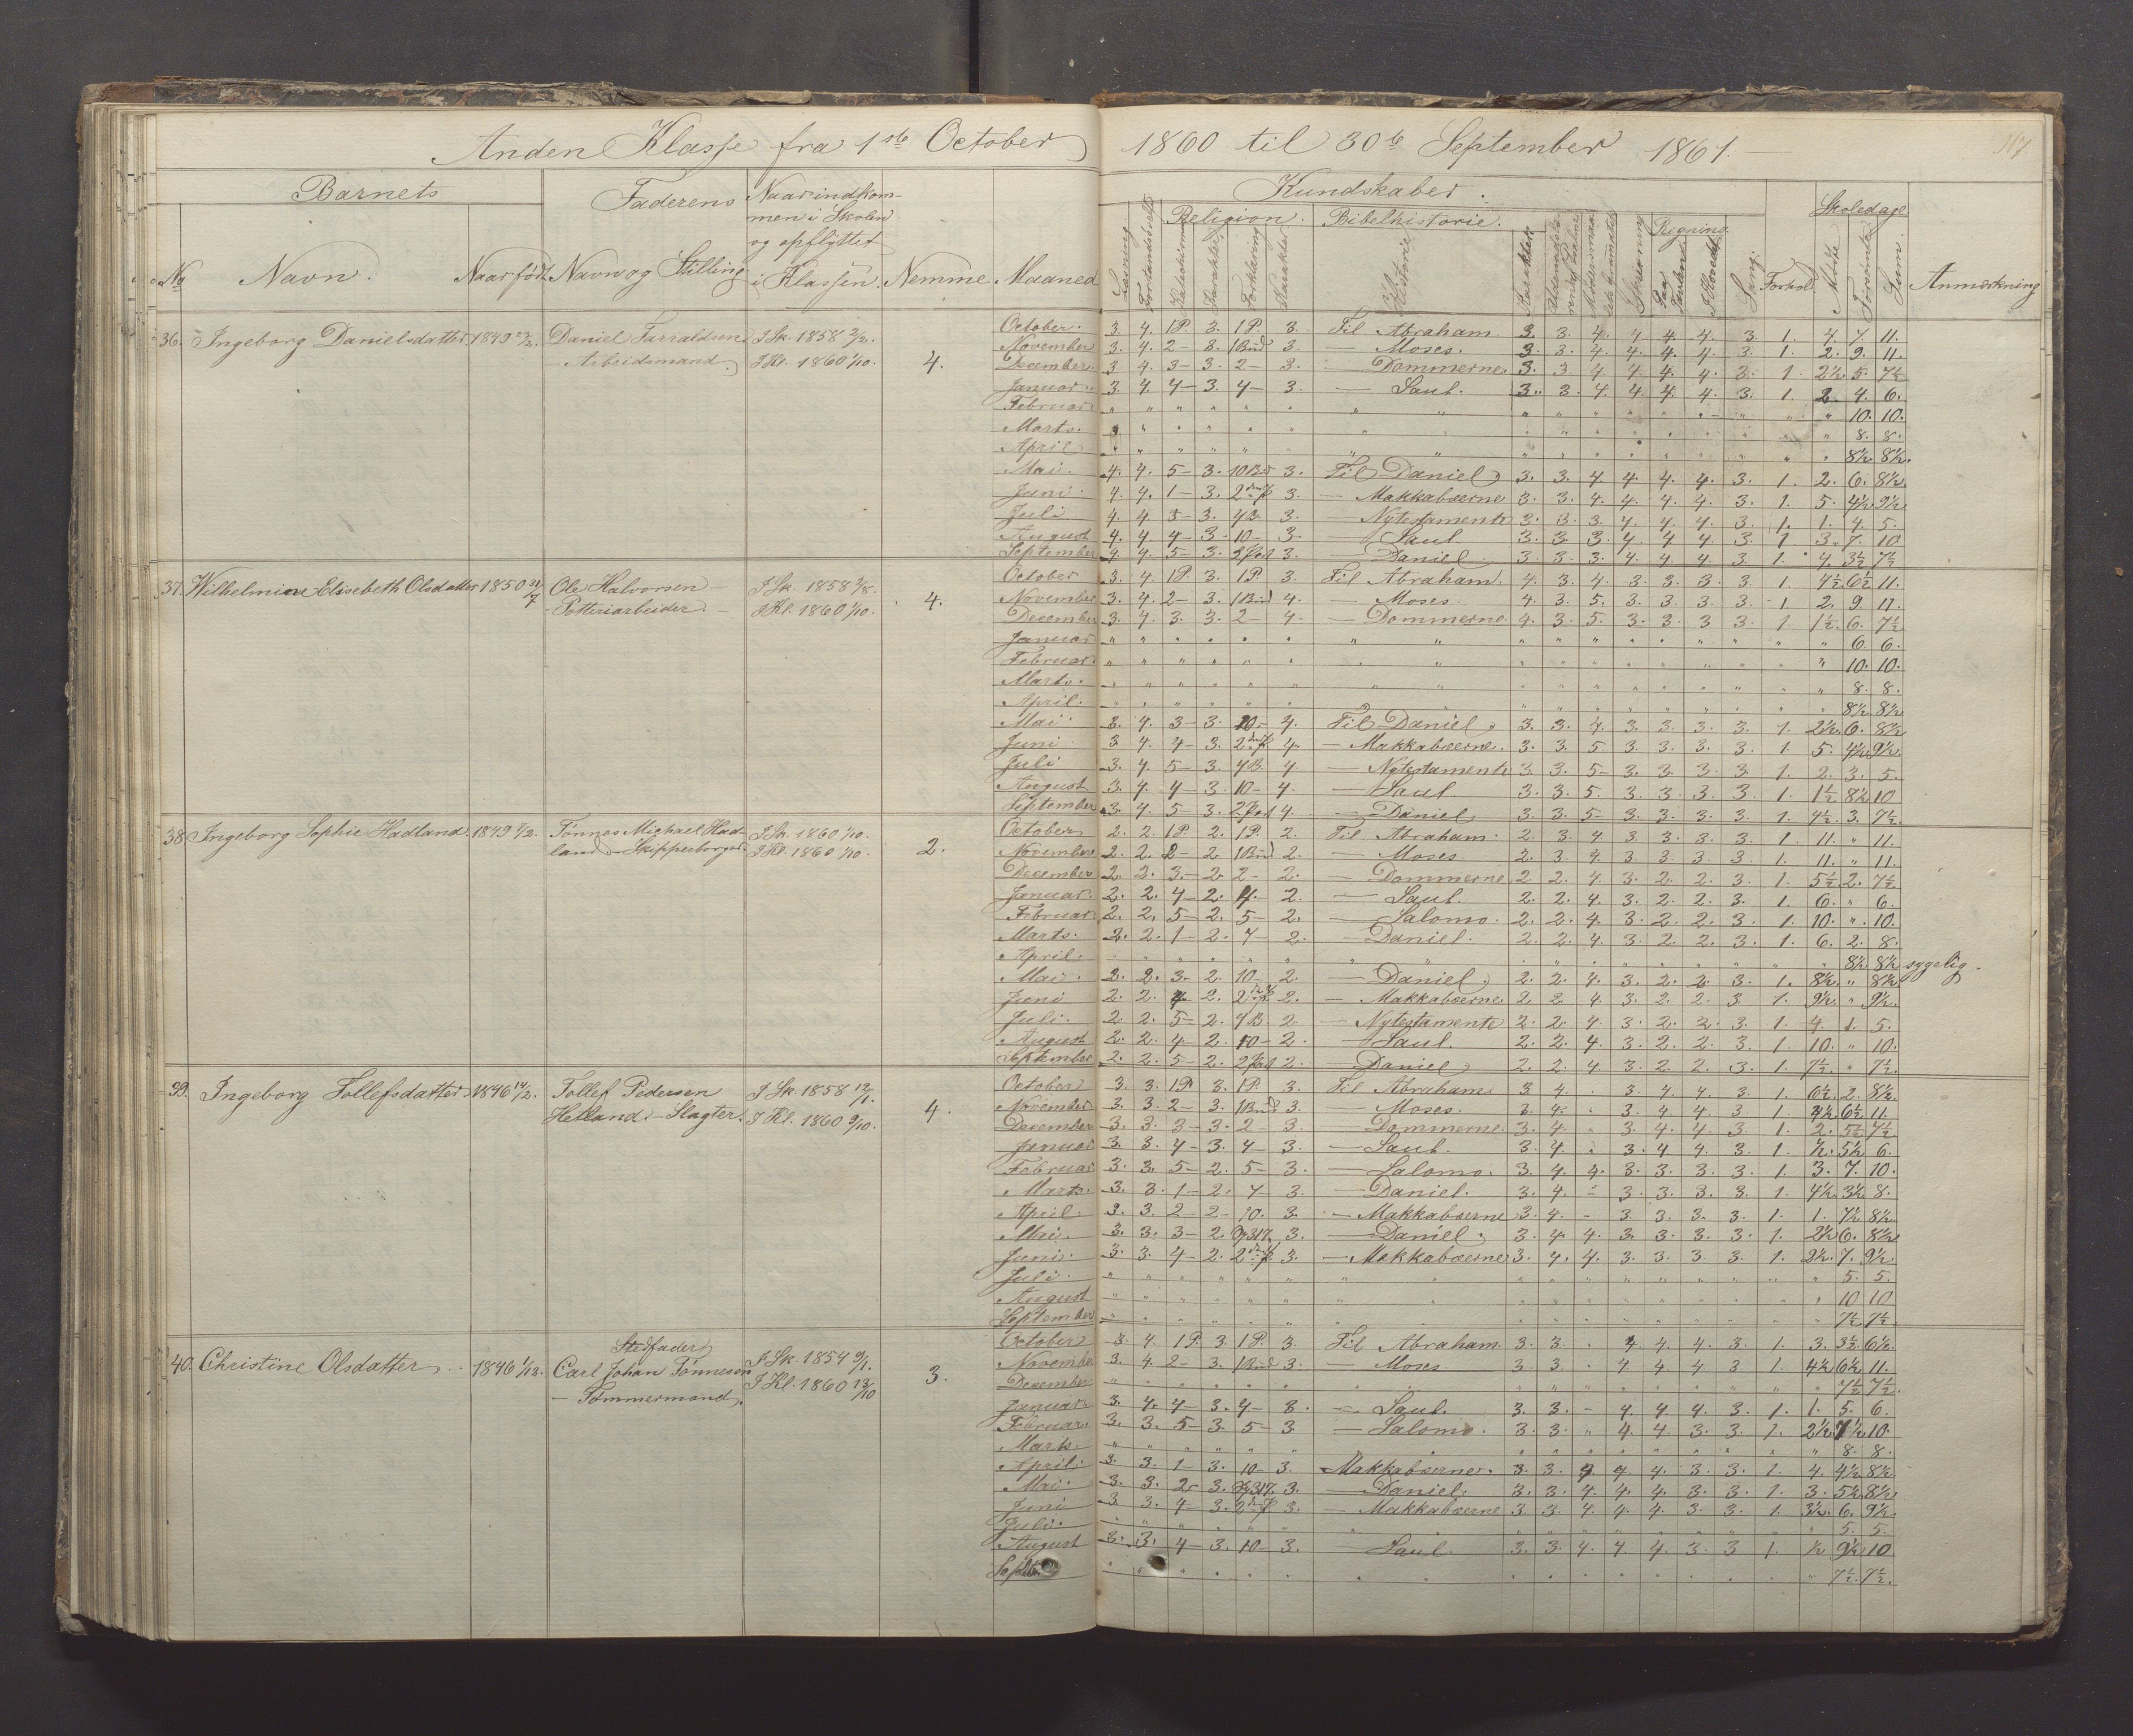 Anden Klasse fra 1ste October 1860 til 30te September 1861.
Barnets Faderens Naar indkom-
men i Skolen
og opflyttet
No Navn. Naar født Navn og Stilling i Klassen. Nemme Maaned
Kundskaber.
Religion. Bibelhistorie. Regning. Skoledage
Læsning Forstandsøvelse Katechismus Karakter Forklaring Karakter Historie Karakter Modersmaal Skrivning Paa Tavlen I Hovedet Sang. Forhold Mødte Forsømte Sum. Anmærkning
36. Ingeborg Danielsdatter 1849 Daniel I Sk. 1858 2/2.
– Arbeidsmand. I Kl. 1860 1/10. 4.
October. 3. 4. 1 P. 3. 1 P. 3. Til Abraham 3. 3. 4. 4. 4. 4. 3. 1. 4. 7. 11.
November 3. 4. 2 – 3. 1 Bud 3 — Moses. 3. 3. 4. 4. 4. 4. 3. 1. 2. 9. 11.
December. 3 4. 3 – 3. 2 – 3. — Dommerne. 3. 3 4 4. 4. 4. 3. 1. 2½ 5. 7½
Januar. 3. 4 4 – 3. 4 – 3. — Saul. 3. 3. 4. 4. 4. 4. 3. 1. 2. 4. 6.
Februar " " " " " " " " " " " " " " " " " 10. 10.
Marts. " " " " " " " " " " " " " " " 8. 8.
April " " " " " " " " " " " " " " " 8½ 8½.
Mai. 4. 4. 5 – 3. 10 Bud 3. Til Daniel, 3. 3. 4. 4. 4. 4. 3. 1. 2. 6. 8½
Juni. 4. 4. 1 – 3. 2 3. — Makkabæerne 3. 3. 4. 4. 4. 4. 3. 1. 5. 4½ 9½
Juli 4. 4 3 – 3. 4 B. 3. — Nytestamente 3. 3. 3. 4. 4. 4. 3. 1. 1. 4. 5.
August 4. 4. 4 – 3 – 10 – 3. — Saul 3. 3. 3. 4. 4. 4. 3. 1 3. 7. 10
September 4. 4. 5 – 3. 3. — Daniel 3. 3. 3. 4. 4. 4. 3 1. 4. 3½ 7½
37. Wilhelmine Elisebeth Olsdatter 1850 Ole Halvorsen I Sk. 1858 2/8.
– Potteriarbeider. – I Kl. 1860 1/10. 4.
October 3. 4. 1 P. 3. 1 P. 3. Til Abraham. 4. 3. 4. 3. 3. 3. 3. 1. 4½ 6½ 11.
November 3. 4. 2 – 3. 1 Bud 4. — Moses. 4. 3. 5. 3. 3. 3. 3. 1 2. 9. 11.
December 3. 4. 3. 3. 2 – 4. — Dommerne. 4. 3. 5. 3. 3. 3 3. 1. 1½. 6. 7½
Januar " " " " " " " " " " " " " " " 6. 6.
Februar " " " " " " " " " " " " " " " 10. 10.
Marts. " " " " " " " " " " " " " " " 8. 8.
April. " " " " " " " " " " " " " " " 8½ 8½
Mai 3. 4. 3 – 3. 10 – 4. Til Daniel, 3. 3. 4. 3. 3. 3. 3. 1. 2½ 6. 8½
Juni 3 4. 4 – 3. 2 4. — Makkabæerne. 3. 3. 5 3. 3. 3. 3. 1. 5. 4½ 9½.
Juli 3. 4. 5 – 3. 4 B. 4 — Nytestamente 3. 3. 5 – 3. 3. 3. 3. 1. 2. 3. 5.
August 3. 4. 4 – 3. 10 – 4. — Saul. 3. 3. 5. 3. 3. 3. 3. 1. 1½ 8½ 10
September 3. 4. 5 3. 4. — Daniel, 3. 3. 5 – 3. 3. 3. 3. 1. 4½. 3. 7½.
38. Ingeborg Sophie Hadland. 1849 Tønnes Michael Had- I Sk. 1860 1/10.
land – Skipperborger. I Kl. 1860 1/10. 2.
October 2. 2. 1 P. 2. 1 P. 2. Til Abraham. 2. 3. 4 3. 3. 3. 3. 1. 11. " 11.
November 2. 2. 2 – 2. 1 Bud 2. — Moses. 2. 3. 4. 3. 3. 3. 3. 1. 11. " 11.
December 2. 2. 3. – 2. 2 – 2. — Dommerne 2. 2. 4. 3. 2. 2. 3. 1. 5½ 2. 7½
Januar. 2. 2. 4 – 2. 4. – 2. — Saul. 2. 2. 4. 3. 2. 2. 3. 1. 6. " 6.
Februar 2. 2. 5 – 2. 5 – 2. — Salomo. 2. 2. 4. 3. 2. 2. 3. 1. 10. " 10.
Marts. 2. 2. 1 – 2. 7 – 2. — Daniel. 2. 2. 4. 3. 2. 2. 3. 1. 6. 2. 8.
April. " " " " " " " " " " " " " " " 8½ 8½ sygelig.
Mai. 2. 2. 3 – 2. 10 – 2. — Daniel, 2. 2. 4. 3. 2. 2. 3. 1. 8½. " 8½
Juni 2. 2. 4 – 2. 2 2. — Makkabæerne 2. 2. 4. 3. 2. 2. 3. 1. 9½ " 9½.
Juli. 2. 2. 5 – 2. 4 B. 2. — Nytestamente 2. 2. 4. 3. 2. 2. 3. 1. 4. 1. 5.
August 2. 2. 4 – 2. 10 – 2. — Saul. 2. 2. 4. 3. 2. 2. 3. 1. 10. " 10.
September 2. 2. 5 – 2. 2. — Daniel, 2. 2. 4 3. 2. 2. 3. 1. 7½. " 7½.
39. Ingeborg Tollefsdatter. 1846 14/2. Tollef Pedersen I Sk. 1858 12/1.
Hetland. – Slagter. I Kl. 1860 9/10. 4.
October 3. 3. 1 P 3. 1 P. 3. Til Abraham. 3 4. . 3. 4. 4. 3. 1. 6½. 2. 8½.
November 3. 3. 2 – 3. 1 Bud 3 — Moses. 3. 4. . 3. 4. 4. 3 1. 4½ 6½ 11.
December 3. 3. 3 – 3. 2 – 3. — Dommerne. 3. 4. . 3. 4. 4. 3. 1. 2. 5½ 7½
Januar 3. 3. 4 – 3. 4 – 3. — Saul. 3. 4. . 3. 4. 4. 3. 1. ½. 5½ 6.
Februar 3. 3. 5 – 2. 5 – 3. — Salomo. 3. 4. 4. 3. 3. 3. 3. 1. 3. 7. 10.
Marts. 3. 3. 1 – 2. 7 – 3. — Daniel. 3. 4. – 3. 3. 3. 3. 1. 4½ 3½ 8.
April. 3. 3. 2 2 – 10. 3. — Makkabæerne 3. 4. – 3. 3. 3. 3. 1. 1. 7½ 8½
Mai. 3. 3. 3 – 2. 3. — Daniel, 3. 4. 4. 3. 3. 3. 3. 1. 2½ 6. 8½
Juni. 3. 3. 4 – 2. 2 3. — Makkabæerne 3. 4. 4. 3. 3. 3. 3. 1. 2½. 7. 9½.
Juli. " " " " " " " " " " " " " " " 5. 5.
August " " " " " " " " " " " " " " " 10 10
September " " " " " " " " " " " " " " " 7½ 7½
Stedfader
40. Christine Olsdatter. 1846 1/12. Carl Johan Tønnesen I Sk. 1854 9/1.
– Tømmermand. I Kl. 1860 13/10 3.
October 3. 4. 1 P. 3. 1 P. 3. Til Abraham. 3. 3. . 4 4. 4. 3. 1. 3. 3½ 6½.
November 3. 4. 2 – 3. 1 Bud 3. — Moses. 3 3. . 4 4 4. 3 1. 4½ 6½ 11.
December " " " " " " " " " " " " " " " 7½ 7½.
Januar 3. 4. 4 – 3. 4 – 3. — Saul. 3. 3. – 4. 4. 4. 3. 1. 1. 5. 6.
Februar. 3. 3. 5 – 3. 5 – 3. — Salomo. 3. 3. " 4. 4. 3. 3. 1. 2½ 7½ 10.
Marts. " " " " " " " " " " " " " " " 8. 8.
April. 3. 3. 1 – 3. 10 – 3. Makkabæerne. 3. 3. 4 4. 4. 3. 3. 1. 4. 4½ 8½
Mai. 3. 3. 2 – 3. 3. — Daniel, 3. 3. 4. 4. 4. 3. 3. 1. 3. 5½ 8½
Juni 3 3. 4 – 3. 2 3. — Makkabæerne 3. 3. 4. 4. 4. 3. 3. 1. 3½. 6. 9½.
Juli. " " " " " " " " " " " " " " " 5. 5.
August 3. 3. 4 – 3. 10 – 3. — Saul. 3. 3. 4. 4. 4. 3. 3 1. ½ 9½ 10
Septbr " " " " " " " " " " " " " " " 7½. 7½.